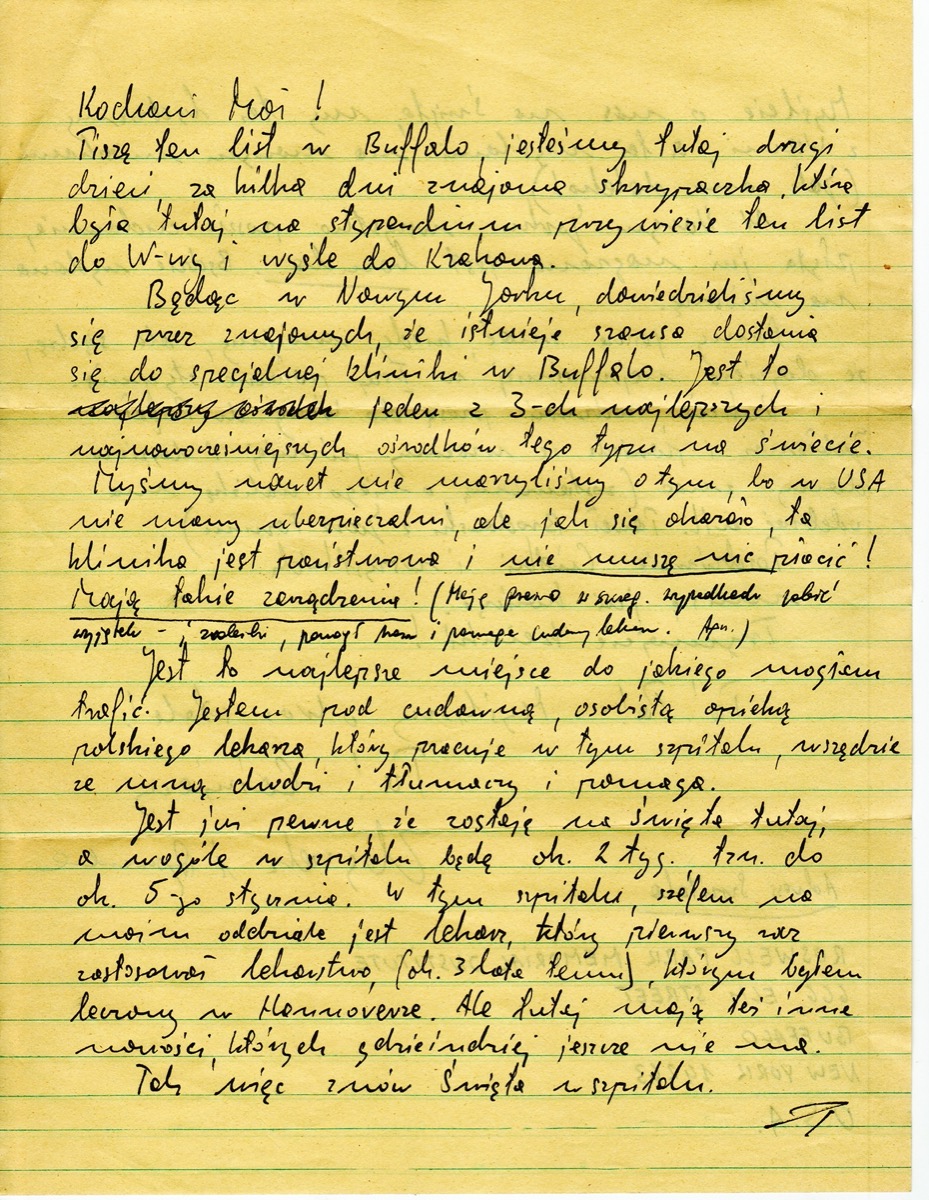 Kochani Moi!
Piszę ten list w Buffalo, jesteśmy tutaj drugi
dzień, za kilka dni znajoma skrzypaczka, która
była tutaj na stypendium przywiezie ten list
do W-wy i wyśle do Krakowa.
Będąc w Nowym Jorku, dowiedzieliśmy
się przez znajomych, że istnieje szansa dostania
się do specjalnej kliniki w Buffalo. Jest to
najlepszy ośrodek jeden z 3-ch najlepszych i
najnowocześniejszych ośrodków tego typu na świecie.
Myśmy nawet nie marzyliśmy o tym, bo w USA
nie mamy ubezpieczalni, ale jak się okazało, ta
klinika jest państwowa i nie muszę nic płacić!
Mają takie zarządzenia! (Mają prawo w szczeg. wypadkach robić
wyjątek – i zrobili, pomógł nam i pomaga cudowny lekarz.)
Jest to najlepsze miejsce do jakiego mogłem
trafić. Jestem pod cudowną, osobistą opieką
polskiego lekarza, który pracuje w tym szpitalu, wszędzie
ze mną chodzi i tłumaczy i pomaga.
Jest już pewne, że zostaję na Święta tutaj,
a wogóle w szpitalu będę ok. 2 tyg. tzn. do
ok. 5-go stycznia. W tym szpitalu, szefem na
moim oddziale jest lekarz, który pierwszy raz
zastosował lekarstwo, (ok. 3 lata temu), którym byłem
leczony w Hannoverze. Ale tutaj mają też inne
nowości, których gdzieindziej jeszcze nie ma.
Tak więc znów Święta w szpitalu.